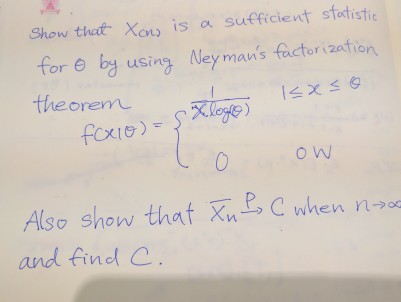 Show that X(n) is a sufficient statistic
for θ by using Neyman's factorization
theorem
f(x|θ) = { 1/(x log θ) 1≤x≤θ
0 OW
Also show that X̄n →P C when n→∞
and find C.